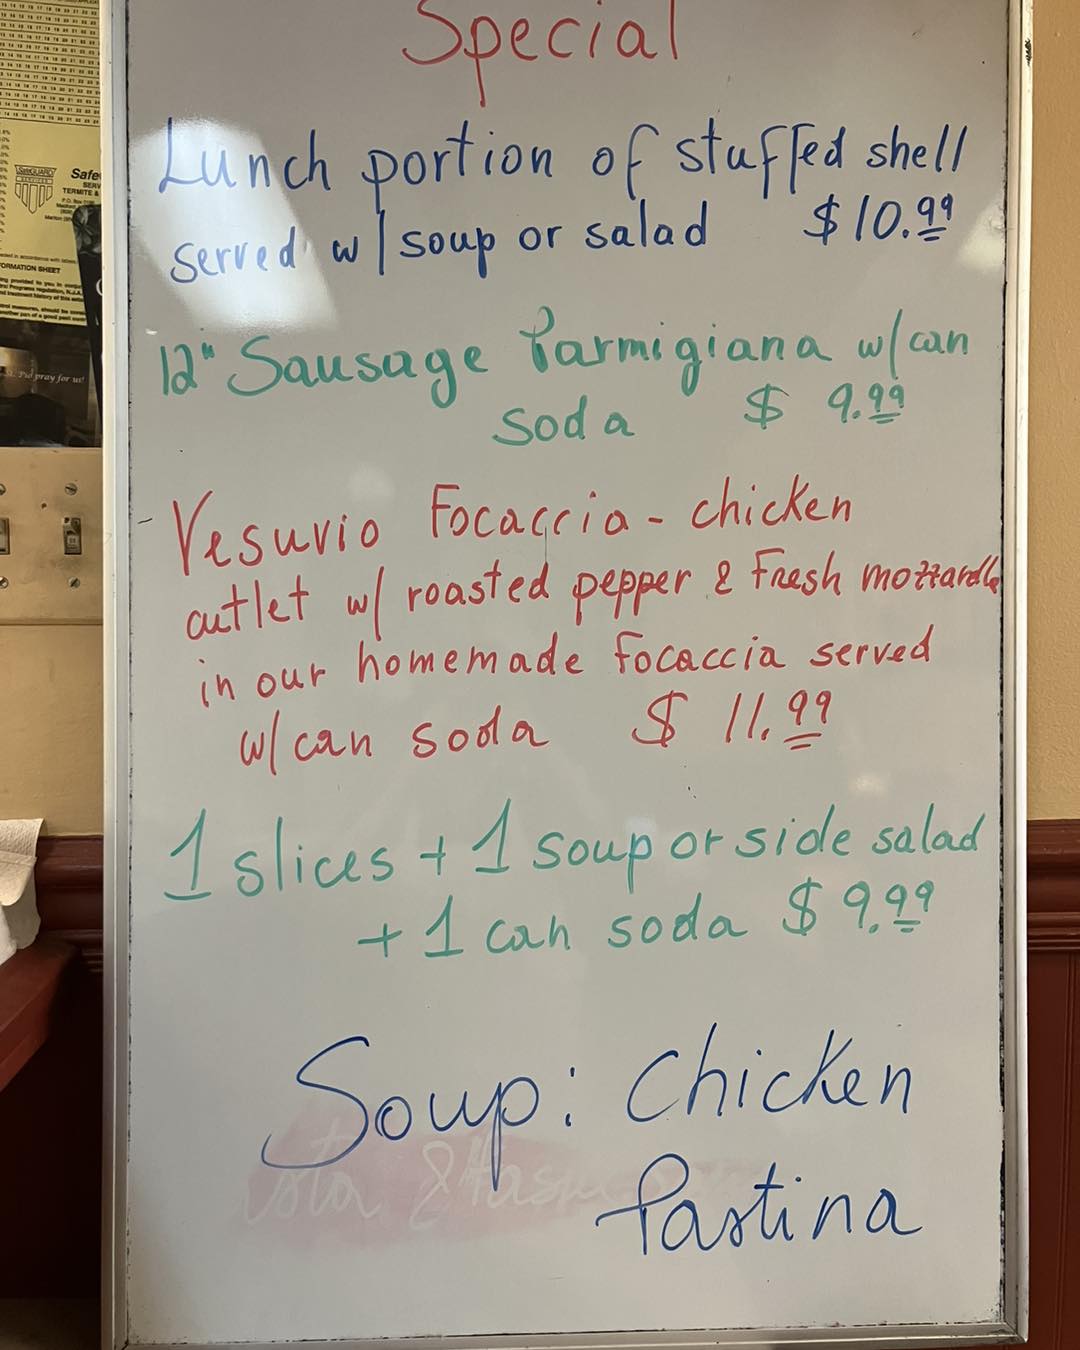 Special
Lunch portion of stuffed shell
served w/soup or salad $10.99
12" Sausage Parmigiana w/can
soda $ 9.99
Vesuvio Focaccia - chicken
cutlet w/ roasted pepper & Fresh mozzarella
in our homemade Focaccia served
w/can soda $ 11.99
1 slices + 1 soup or side salad
+ 1 can soda $ 9.99
Soup: Chicken
Pastina
SafeGUARD
SERVICES
Safe
SERV
TERMITE &
P.O. Box
FORMATION SHEET
Pio pray for us!